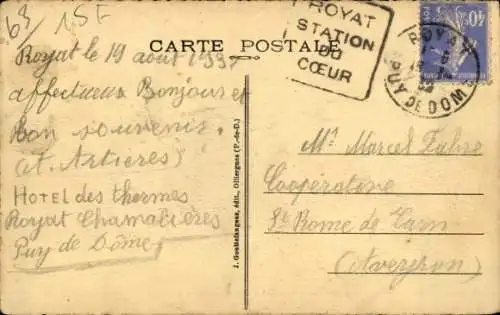 63 / 15E
CARTE POSTALE
ROYAT
STATION
DU
CŒUR
ROYAT
PUY DE DOME
40c
Royat le 19 août 1937
affectueux Bonjours et
bon souvenir.
(A. Artieres)
HOTEL des thermes
Royat Chamalières
Puy de Dôme
J. Gouttefangeas, édit., Olliergues (P.-de-D.)
Mr Marcel Fabre
Coopérative
St Rome de Tarn
(Aveyron)